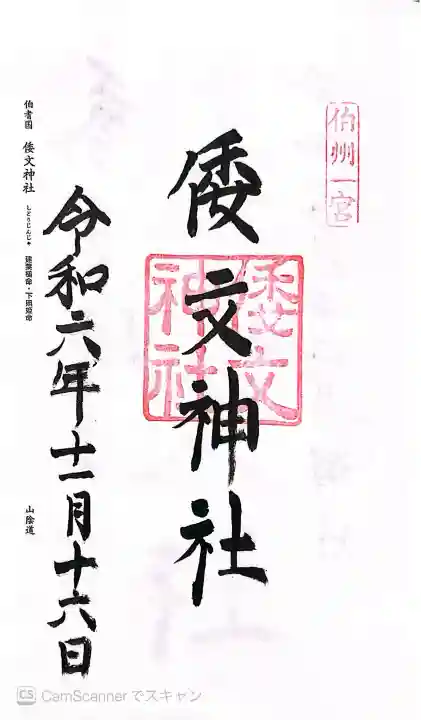 伯州一宮
倭文神社
倭文神社
令和六年十一月十六日
伯耆国 倭文神社 しどりじんじゃ 建葉槌命・下照姫命 山陰道
CS CamScanner でスキャン